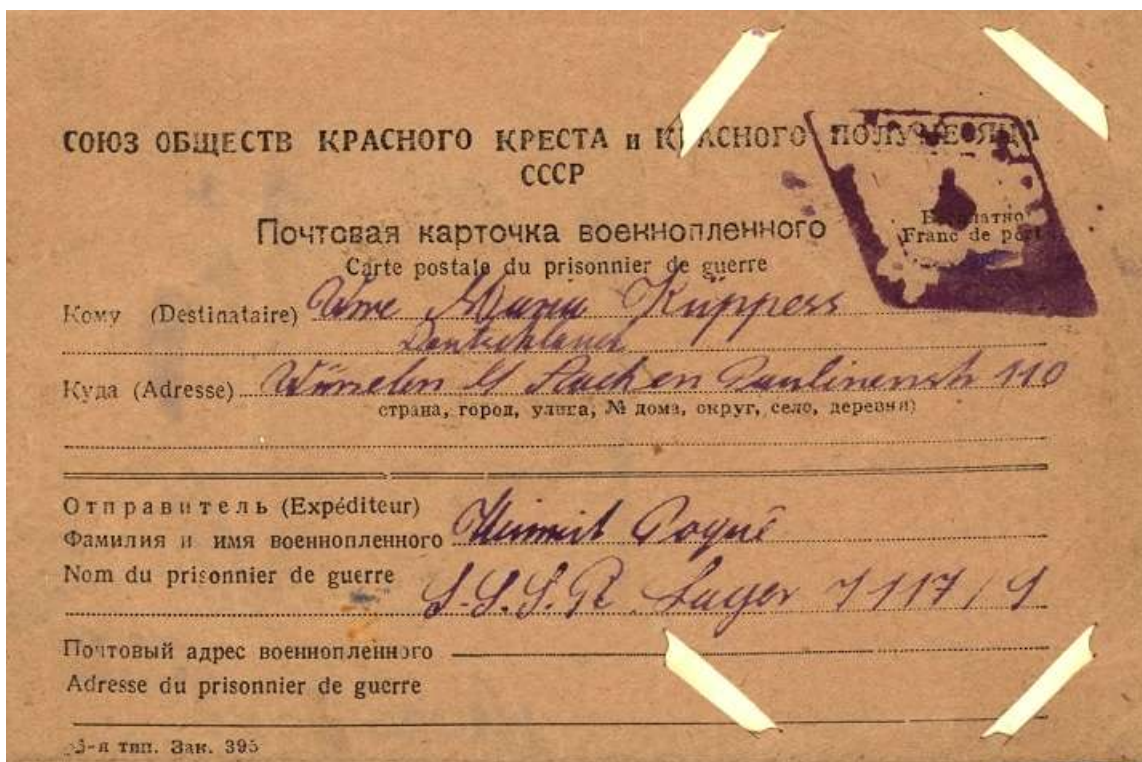 СОЮЗ ОБЩЕСТВ КРАСНОГО КРЕСТА и КРАСНОГО ПОЛУМЕСЯЦА
СССР
Почтовая карточка военнопленного
Бесплатно
Franc de port
Carte postale du prisonnier de guerre
Кому (Destinataire) Maria Küppers
Deutschland
Куда (Adresse) Würselen Aachen Paulinenstr 110
страна, город, улица, № дома, округ, село, деревня)
Отправитель (Expéditeur)
Фамилия и имя военнопленного Poqué
Nom du prisonnier de guerre S.S.S.R Lager 7117/
Почтовый адрес военнопленного
Adresse du prisonnier de guerre
3-я тип. Зак. 395